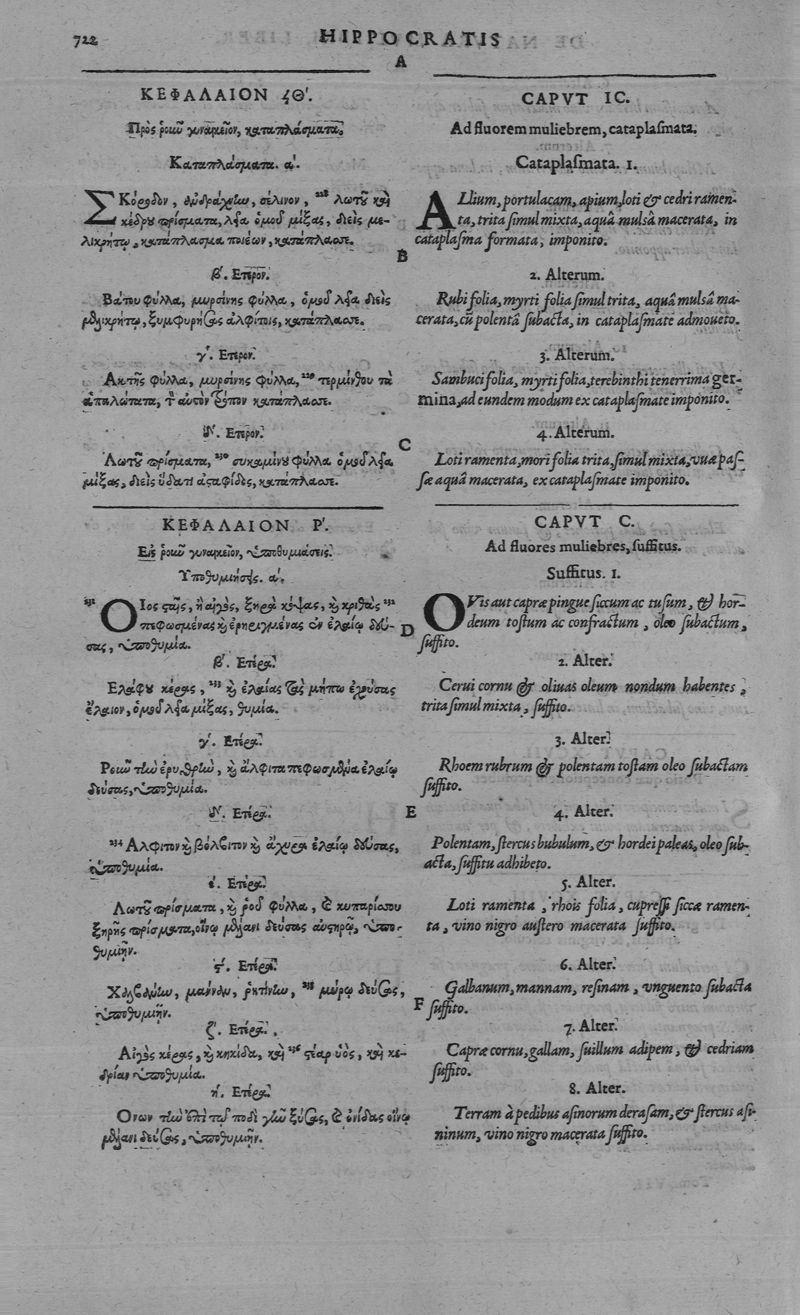 722
HIPPOCRATIS
A
ΚΕΦΑΛΑΙΟΝ ϟΘ'.
Πρὸς ῥοῦν γυναικεῖον, καταπλάσματα.
Καταπλάσματα. α'.
ΣΚόροδον, ἀνδράχνην, σέλινον, 228 λωτοῦ καὶ
κέδρου πρίσματα, λεῖα ὁμοῦ μίξας, διεὶς με-
λικρήτῳ, κατάπλασμα ποιέων, κατάπλασσε.
β'. Ετερον.
Βάτου φύλλα, μυρσίνης φύλλα, ὁμοῦ λεῖα διεὶς
μελικρήτῳ, ξυμφυρήσας ἀλφίτοις, κατάπλασσε.
γ'. Ετερον.
Ακτῆς φύλλα, μυρσίνης φύλλα, 229 τερμίνθου τὰ
ἁπαλώτατα, τὸν αὐτὸν τρόπον κατάπλασσε.
δ'. Ετερον.
Λωτοῦ πρίσματα, 230 συκαμίνου φύλλα ὁμοῦ λεῖα
μίξας, διεὶς ὕδατι ἀσταφίδες, κατάπλασσε.
ΚΕΦΑΛΑΙΟΝ Ρ'.
Εἰς ῥοῦν γυναικεῖον, ὑποθυμιάσεις.
Υποθυμιήσιες. α'.
231 ΟΙος στέαρ, ἢ αἰγὸς, ξηρὰ κόψας, καὶ κριθὰς 232
πεφωσμένας καὶ ἐρηριγμένας ἐν ἐλαίῳ δεύ-
σας, ὑποθυμία.
β'. Ετέρα.
Ελάφου κέρας, 233 καὶ ἐλαίας τὰς μήπω ἐχούσας
ἔλαιον, ὁμοῦ λεῖα μίξας, θυμία.
γ'. Ετέρα.
Ροῦν τὴν ἐρυθρὴν, καὶ ἄλφιτα πεφωσμένα ἐλαίῳ
δεύσας, ὑποθυμία.
δ'. Ετέρα.
234 Αλφιτον καὶ βόλβιτον καὶ ἄχυρα ἐλαίῳ δεύσας,
ὑποθυμία.
ε'. Ετέρα.
Λωτοῦ πρίσματα, καὶ ῥοῦ φύλλα, καὶ κυπαρίσσου
ξηρῆς πρίσματα, οἴνῳ μέλανι δεύσας αὐστηρῷ, ὑπο-
θυμιῇν.
ϛ'. Ετέρα.
Χαλβάνην, μάνναν, ῥητίνην, 235 μύρῳ δεύσας,
ὑποθυμιῇν.
ζ'. Ετέρα.
Αἰγὸς κέρας, καὶ κηκίδα, καὶ 236 στέαρ ὑὸς, καὶ κε-
δρίαν ὑποθυμία.
η'. Ετέρα.
Ονων τὴν ἐπὶ τῷ ποδὶ γῆν ξύσας, καὶ ὀνίδας οἴνῳ
μέλανι δεύσας, ὑποθυμιῇν.
B
C
D
E
F
CAPVT IC.
Ad fluorem muliebrem, cataplaſmata.
Cataplaſmata. 1.
ALlium, portulacam, apium, loti & cedri ramen-
ta, trita ſimul mixta, aquâ mulsâ macerata, in
cataplaſma formata, imponito.
2. Alterum.
Rubi folia, myrti folia ſimul trita, aquâ mulsâ ma-
cerata, cū polentâ ſubacta, in cataplaſmate admoueto.
3. Alterum.
Sambuci folia, myrti folia, terebinthi tenerrima ger-
mina, ad eundem modum ex cataplaſmate imponito.
4. Alterum.
Loti ramenta, mori folia trita, ſimul mixta, vuæ paſ-
ſæ aquâ macerata, ex cataplaſmate imponito.
CAPVT C.
Ad fluores muliebres, ſuffitus.
Suffitus. 1.
OVis aut capræ pingue ſiccum ac tuſum, & hor-
deum toſtum ac confractum, oleo ſubactum,
ſuffito.
2. Alter.
Cerui cornu & oliuas oleum nondum habentes,
trita ſimul mixta, ſuffito.
3. Alter.
Rhoem rubrum & polentam toſtam oleo ſubactam
ſuffito.
4. Alter.
Polentam, ſtercus bubulum, & hordei paleas, oleo ſub-
acta, ſuffitu adhibeto.
5. Alter.
Loti ramenta, rhois folia, cupreſſi ſiccæ ramen-
ta, vino nigro auſtero macerata ſuffito.
6. Alter.
Galbanum, mannam, reſinam, vnguento ſubacta
ſuffito.
7. Alter.
Capræ cornu, gallam, ſuillum adipem, & cedriam
ſuffito.
8. Alter.
Terram à pedibus aſinorum deraſam, & ſtercus aſi-
ninum, vino nigro macerata ſuffito.